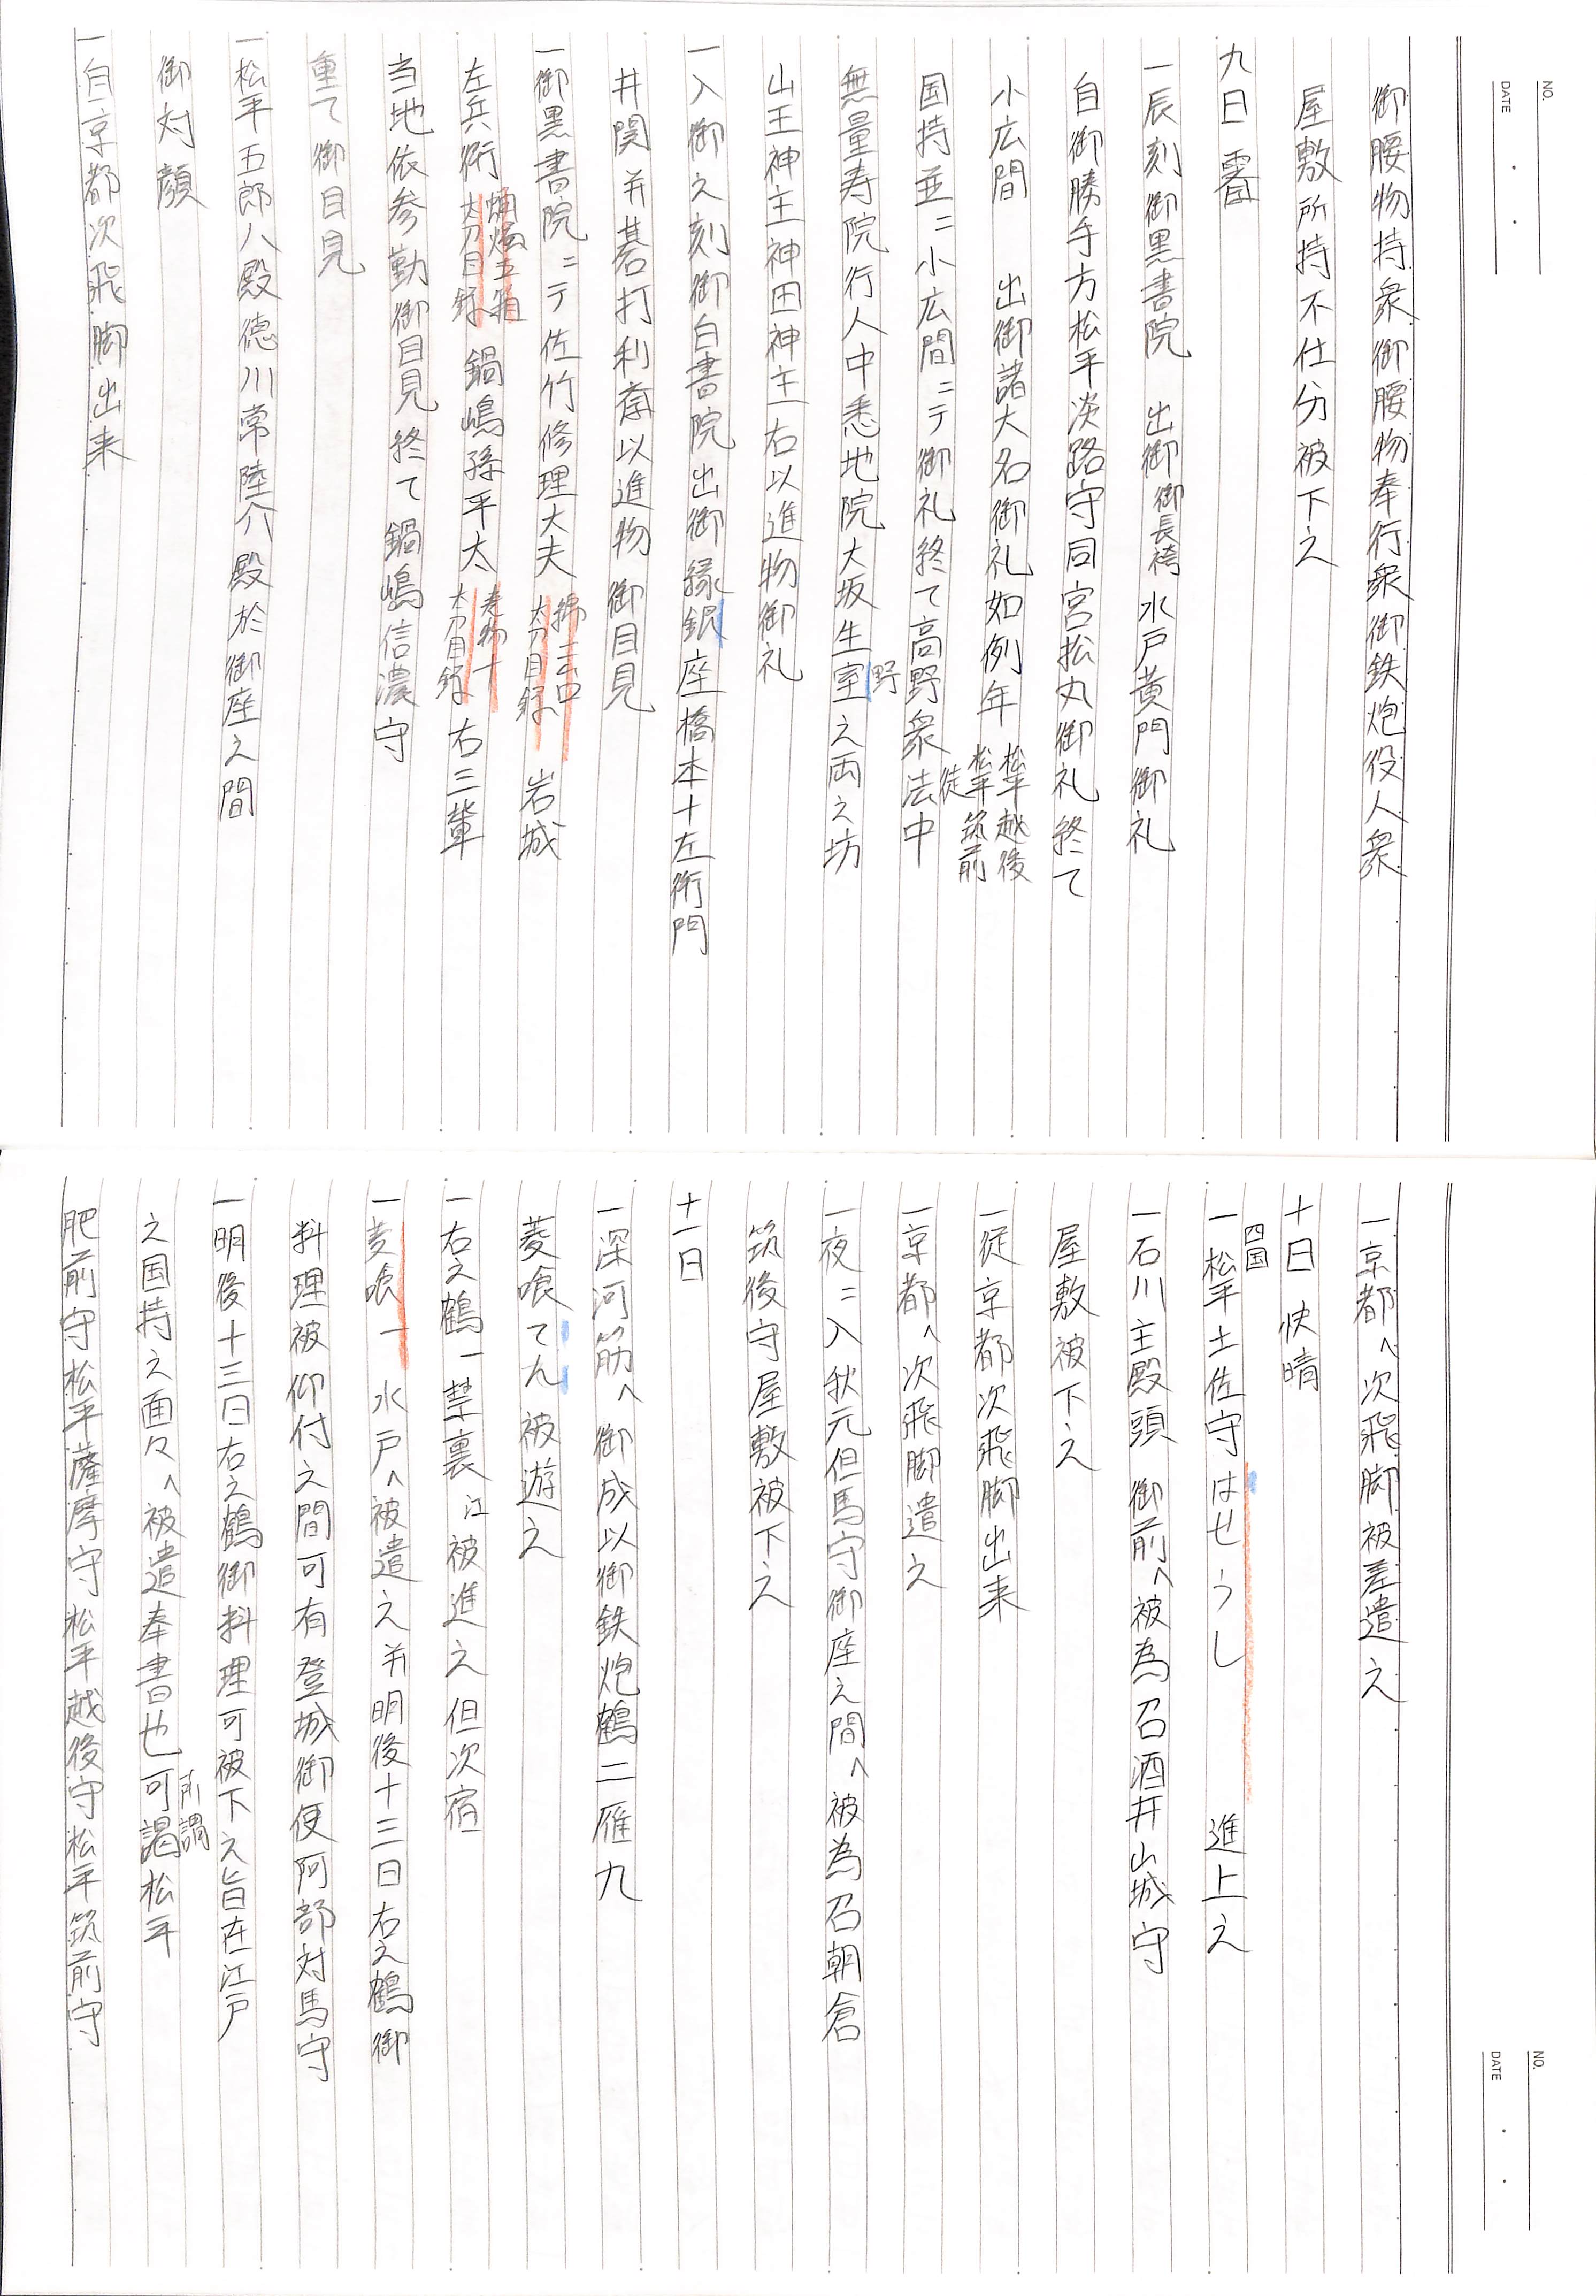 NO.
DATE
御腰物持衆御腰物奉行衆御鉄炮役人衆
屋敷所持不仕分被下之
九日 霽
一辰刻御黒書院 出御 御長袴 水戸黄門御礼
自御勝手方松平淡路守同宮松丸御礼終て
小広間 出御諸大名御礼如例年 松平越後 松平筑前
国持並ニ小広間ニテ御礼終て高野衆徒法中
無量寿院行人中悉地院大坂生室野之両之坊
山王神主神田神主右以進物御礼
一入御之刻御白書院出御縁銀座橋本十左衛門
井関并碁打利斎以進物御目見
一御黒書院ニテ佐竹修理大夫 太刀目録 岩城
左兵衛 蝋燭五箱 太刀目録 鍋嶋孫平太 巻物十 太刀目録 右三輩
当地依参勤御目見終て鍋嶋信濃守
重て御目見
一松平五郎八殿徳川常陸介殿於御座之間
御対顔
一自京都次飛脚出来
NO.
DATE
一京都へ次飛脚被差遣之
十日 快晴
一四国松平土佐守はせうし 進上之
一石川主殿頭 御前へ被為召酒井山城守
屋敷被下之
一従京都次飛脚出来
一京都へ次飛脚遣之
一夜ニ入秋元但馬守御座之間へ被為召朝倉
筑後守屋敷被下之
十一日
一深河筋へ御成以御鉄炮鶴二雁九
菱喰てん被遊之
一右之鶴一禁裏江被進之但次宿
一菱喰一 水戸へ被遣之并明後十三日右之鶴御
料理被仰付之間可有登城御使阿部対馬守
一明後十三日右之鶴御料理可被下之旨在江戸
之国持之面々へ被遣奉書也可謁所謂松平
肥前守松平薩摩守松平越後守松平筑前守